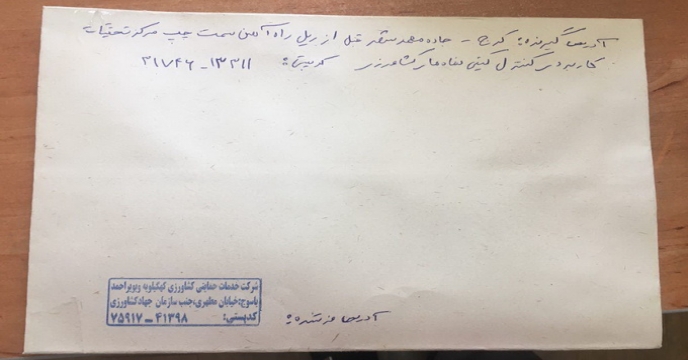 آدرس گیرنده: کرج - جاده مشهد قبل از ریل راه آهن سمت چپ مرکز تحقیقات
کاربردی کنترل کیفی کشاورزی کدپستی: ۱۳۳۱۱ - ۳۱۷۴۶
شرکت خدمات حمایتی کشاورزی کهکیلویه وبویراحمد
یاسوج:خیابان مطهری،جنب سازمان جهادکشاورزی
کدپستی: ۴۱۳۹۸ - ۷۵۹۱۷
آدرس فرستنده: